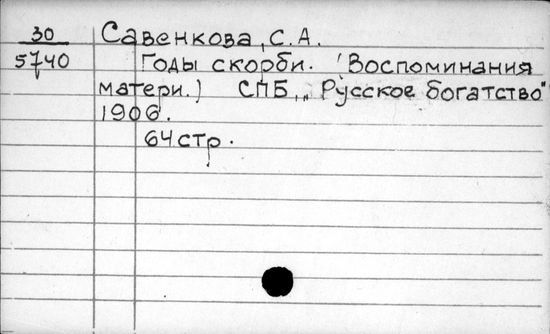 30
5740
Савенкова, С.А.
Годы скорби. (Воспоминания
матери.) СПБ, „Русское богатство"
1906.
64 стр.